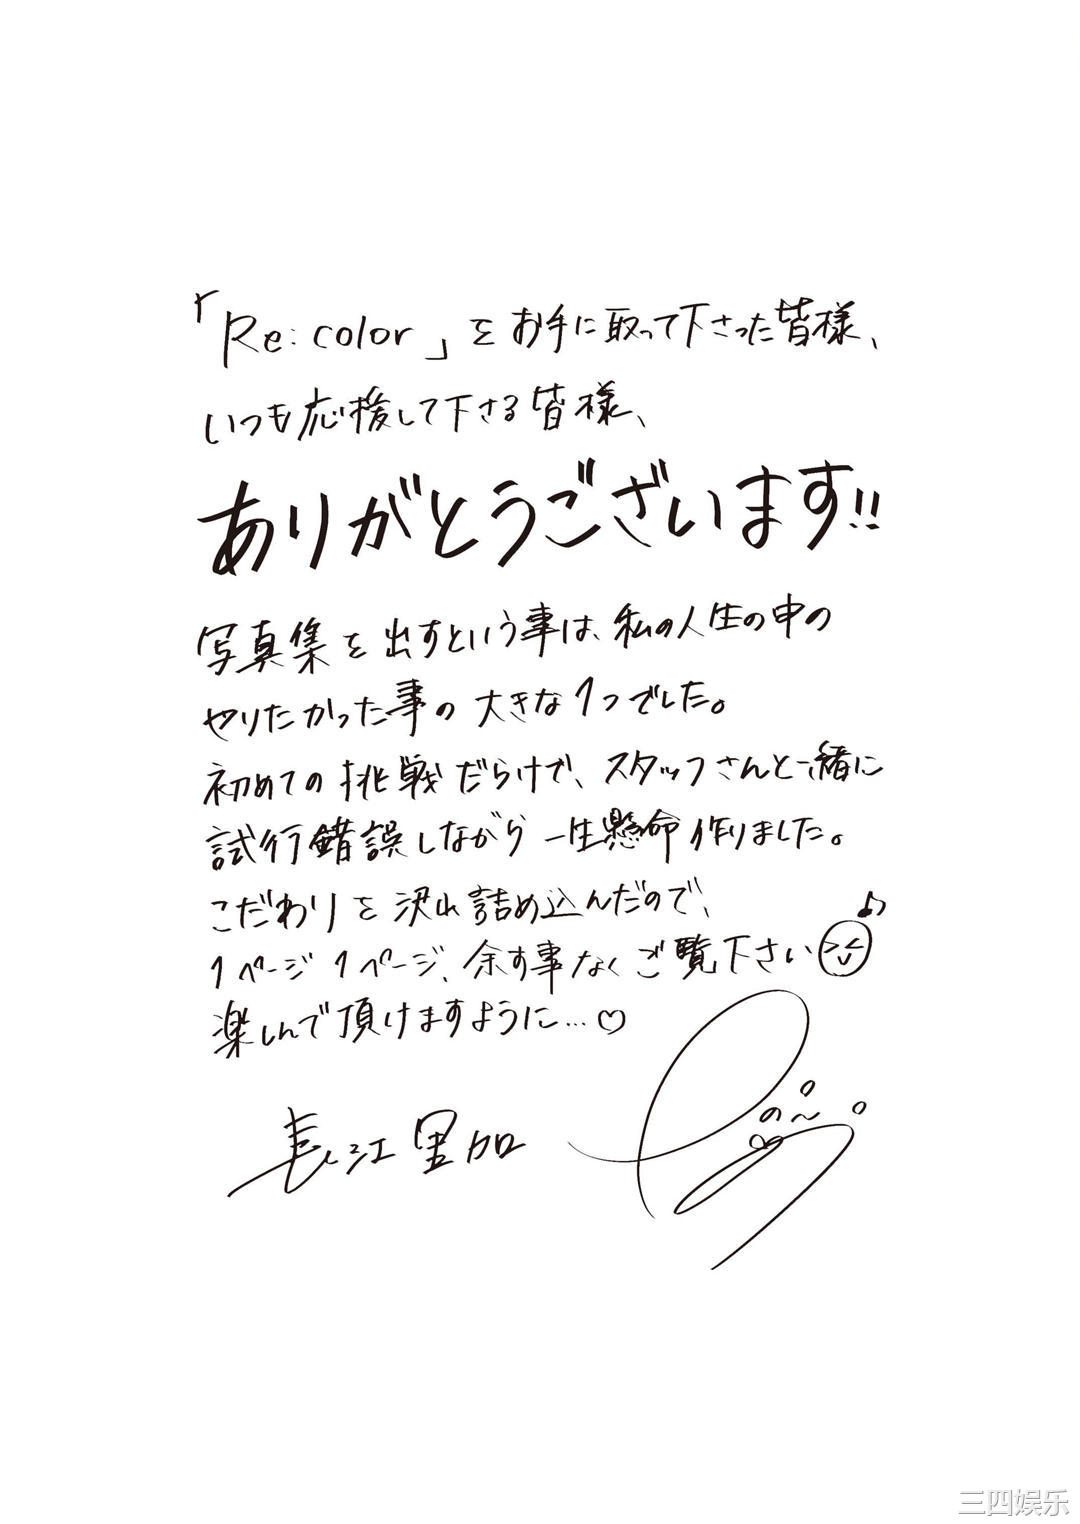 「Re:color」をお手に取って下さった皆様、
いつも応援して下さる皆様、
ありがとうございます!!
写真集を出すという事は、私の人生の中の
やりたかった事の大きな1つでした。
初めての挑戦だらけで、スタッフさんと一緒に
試行錯誤しながら一生懸命作りました。
こだわりを沢山詰め込んだので、
1ページ1ページ、余す事なくご覧下さい
楽しんで頂けますように…♡
長江里加
三四娱乐